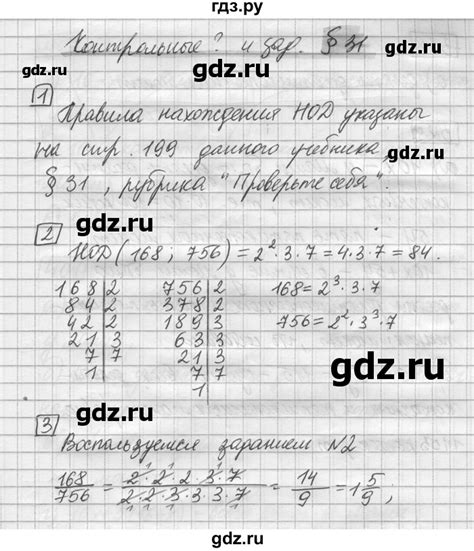 гдз.ру
Контрольные ? и зад. § 31
gdz.ru
gdz.ru
1
Правила нахождения НОД указаны
на стр. 199 данного учебника,
§ 31, рубрика "Проверьте себя".
gdz.ru
gdz.ru
2
НОД (168; 756) = 2² · 3 · 7 = 4 · 3 · 7 = 84.
168|2 756|2 168 = 2³ · 3 · 7
84|2 378|2
42|2 189|3 756 = 2² · 3³ · 7
21|3 63|3
7|7 21|3
1 7|7
1
gdz.ru
gdz.ru
3
Воспользуемся заданием №2
168/756 = 2·2·2·3·7/2·2·3·3·3·7 = 14/9 = 1 5/9,
gdz.ru
gdz.ru